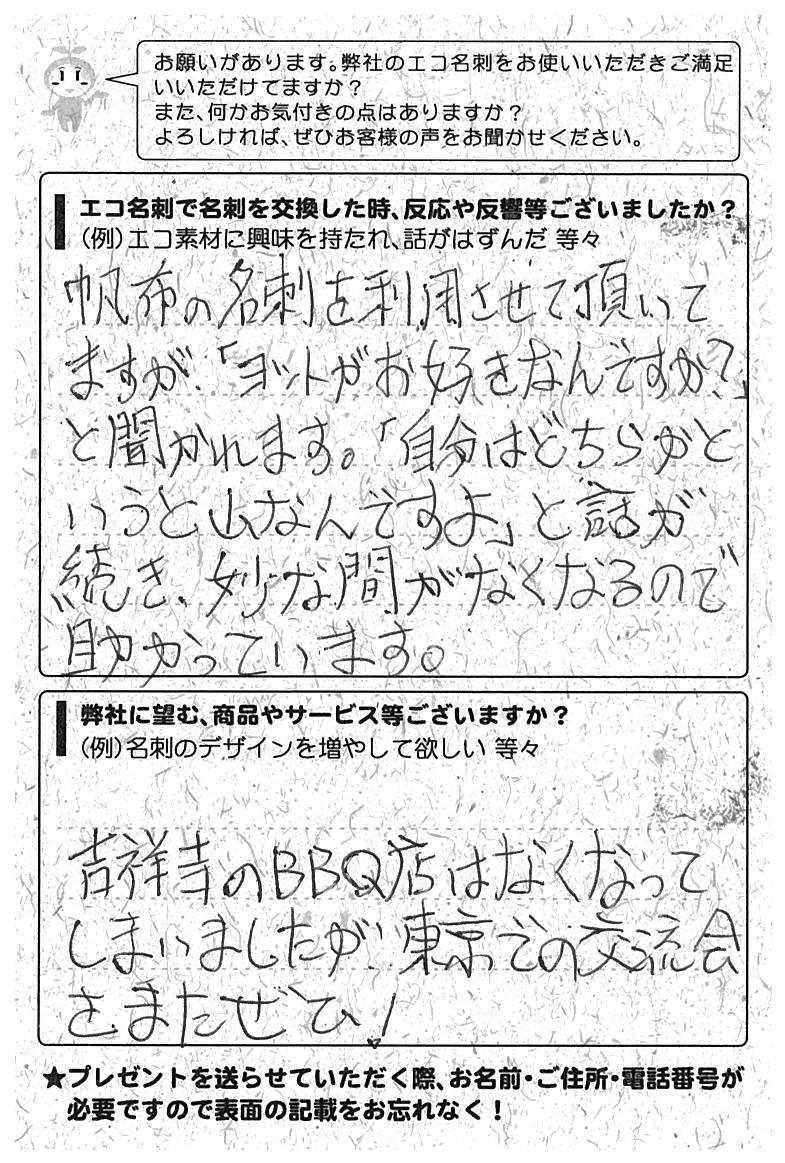 お願いがあります。弊社のエコ名刺をお使いいただきご満足
いいただけてますか?
また、何かお気付きの点はありますか?
よろしければ、ぜひお客様の声をお聞かせください。
エコ名刺で名刺を交換した時、反応や反響等ございましたか?
(例)エコ素材に興味を持たれ、話がはずんだ 等々
帆布の名刺を利用させて頂いて
ますが、「ヨットがお好きなんですか?」
と聞かれます。「自分はどちらかと
いうと山なんですよ」と話が
続き、妙な間がなくなるので
助かっています。
弊社に望む、商品やサービス等ございますか?
(例)名刺のデザインを増やして欲しい 等々
吉祥寺のBBQ店はなくなって
しまいましたが、東京での交流会
をまたぜひ!
★プレゼントを送らせていただく際、お名前・ご住所・電話番号が
必要ですので表面の記載をお忘れなく!